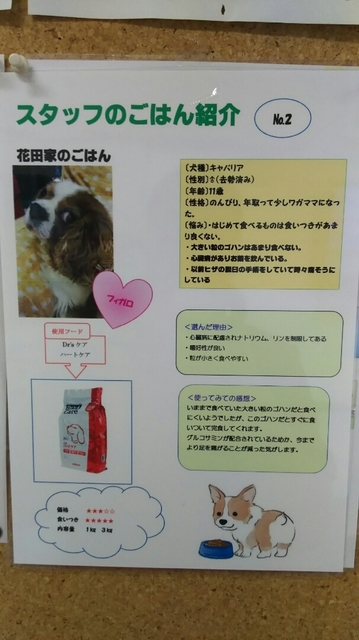 スタッフのごはん紹介
No.2
花田家のごはん
【犬種】キャバリア
【性別】♂(去勢済み)
【年齢】11歳
【性格】のんびり、年取って少しワガママになっ
た。
【悩み】・はじめて食べるものは食いつきがあま
り良くない。
・大きい粒のゴハンはあまり食べない。
・心臓病がありお薬を飲んでいる。
・以前ヒザの脱臼の手術をしていて時々痛そうに
している
フィガロ
使用フード
Dr'sケア
ハートケア
<選んだ理由>
・心臓病に配慮されナトリウム、リンを制限してある
・嗜好性が良い
・粒が小さく食べやすい
<使ってみての感想>
いままで食べていた大きい粒のゴハンだと食べ
にくいようでしたが、このゴハンだとすぐに食
いついて完食してくれます。
グルコサミンが配合されているためか、今まで
より足を痛がることが減った気がします。
価格 ★★★☆☆
食いつき ★★★★★
内容量 1kg 3kg